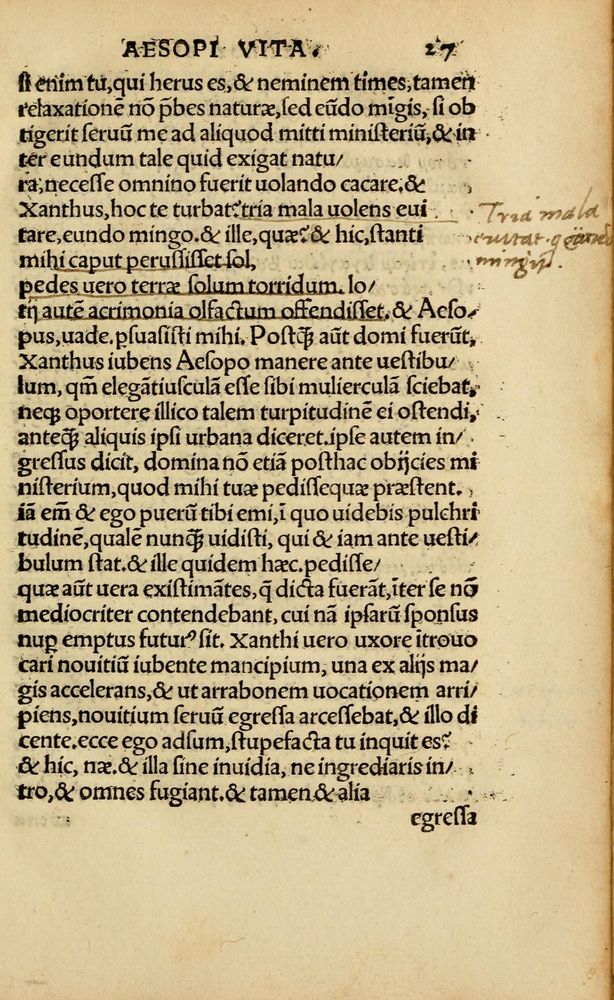 AESOPI VITA. 27
si enim tu, qui herus es, & neminem times, tamen
relaxationē nō p̄bes naturæ, sed eūdo mīgis, si ob
tigerit seruū me ad aliquod mitti ministeriū, & in
ter eundum tale quid exigat natu/
ra, necesse omnino fuerit uolando cacare. &
Xanthus, hoc te turbat? tria mala uolens eui
tare, eundo mingo. & ille, quæ? & hic, stanti
mihi caput perussisset sol,
pedes uero terræ solum torridum. lo/
tij autē acrimonia olfactum offendisset. & Aeso/
pus, uade. p̱suasisti mihi. Postq̄ aūt domi fuerūt,
Xanthus iubens Aesopo manere ante uestibu/
lum, qm̄ elegātiusculā esse sibi mulierculā sciebat,
neq; oportere illico talem turpitudinē ei ostendi,
anteq̄ aliquis ipsi urbana diceret. ipse autem in/
gressus dicit, domina nō etiā posthac obijcies mi
nisterium, quod mihi tuæ pedissequæ præstent.
iā em̄ & ego puerū tibi emi, ī quo uidebis pulchri
tudinē, qualē nunq̄ uidisti, qui & iam ante uesti/
bulum stat. & ille quidem hæc. pedisse/
quæ aūt uera existimātes, q̄ dicta fuerāt, īter se nō
mediocriter contendebant, cui nā ipsarū sponsus
nup̱ emptus futurꝰ sit. Xanthi uero uxore ītrouo
cari nouitiū iubente mancipium, una ex alijs ma/
gis accelerans, & ut arrabonem uocationem arri/
piens, nouitium seruū egressa arcessebat, & illo di
cente. ecce ego adsum, stupefacta tu inquit es?
& hic, næ. & illa sine inuidia, ne ingrediaris in/
tro, & omnes fugiant. & tamen & alia
egressa
Tria mala
euitat q